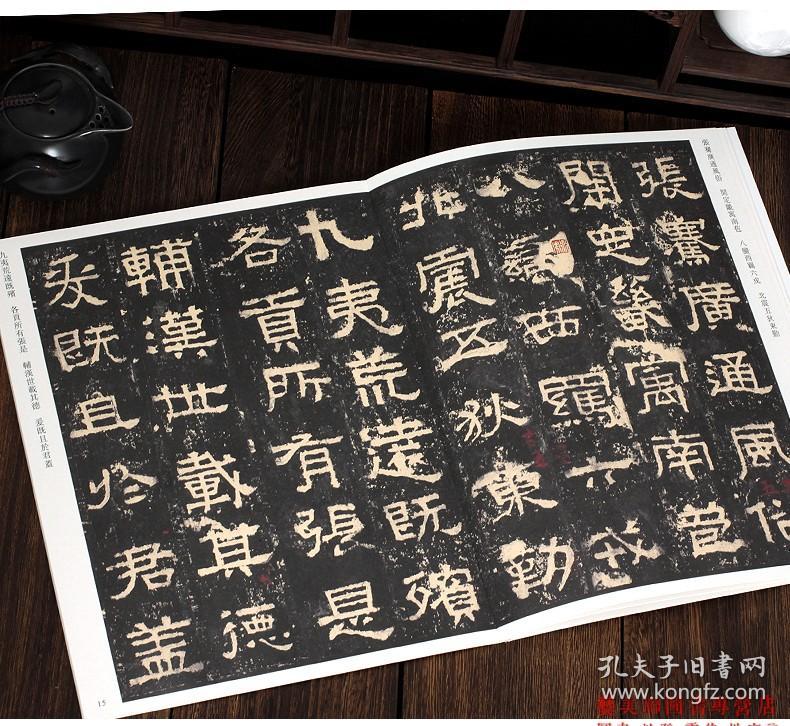 張騫廣通風俗 開定畿寓南苞 八蠻西羈六戎 北震五狄東勤
張騫廣通風俗
開定畿寓南苞
八蠻西羈六戎
北震五狄東勤
九夷荒遠既殯
各貢所有張是
輔漢世載其德
爰既且於君蓋
九夷荒遠既殯 各貢所有張是 輔漢世載其德 爰既且於君蓋
15
孔夫子旧书网
www.kongfz.com
圖書專營店